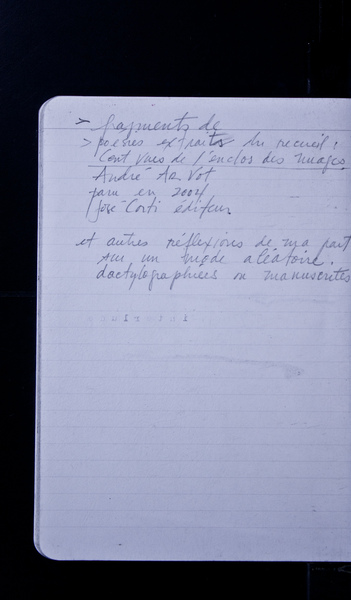 > fragments de
> poèmes extraits du recueil :
Cent vues de l'enclos des nuages,
André Ar Vot
paru en 2004
José Corti éditeur
et autres réflexions de ma part
sur un mode aléatoire.
dactylographiées ou manuscrites